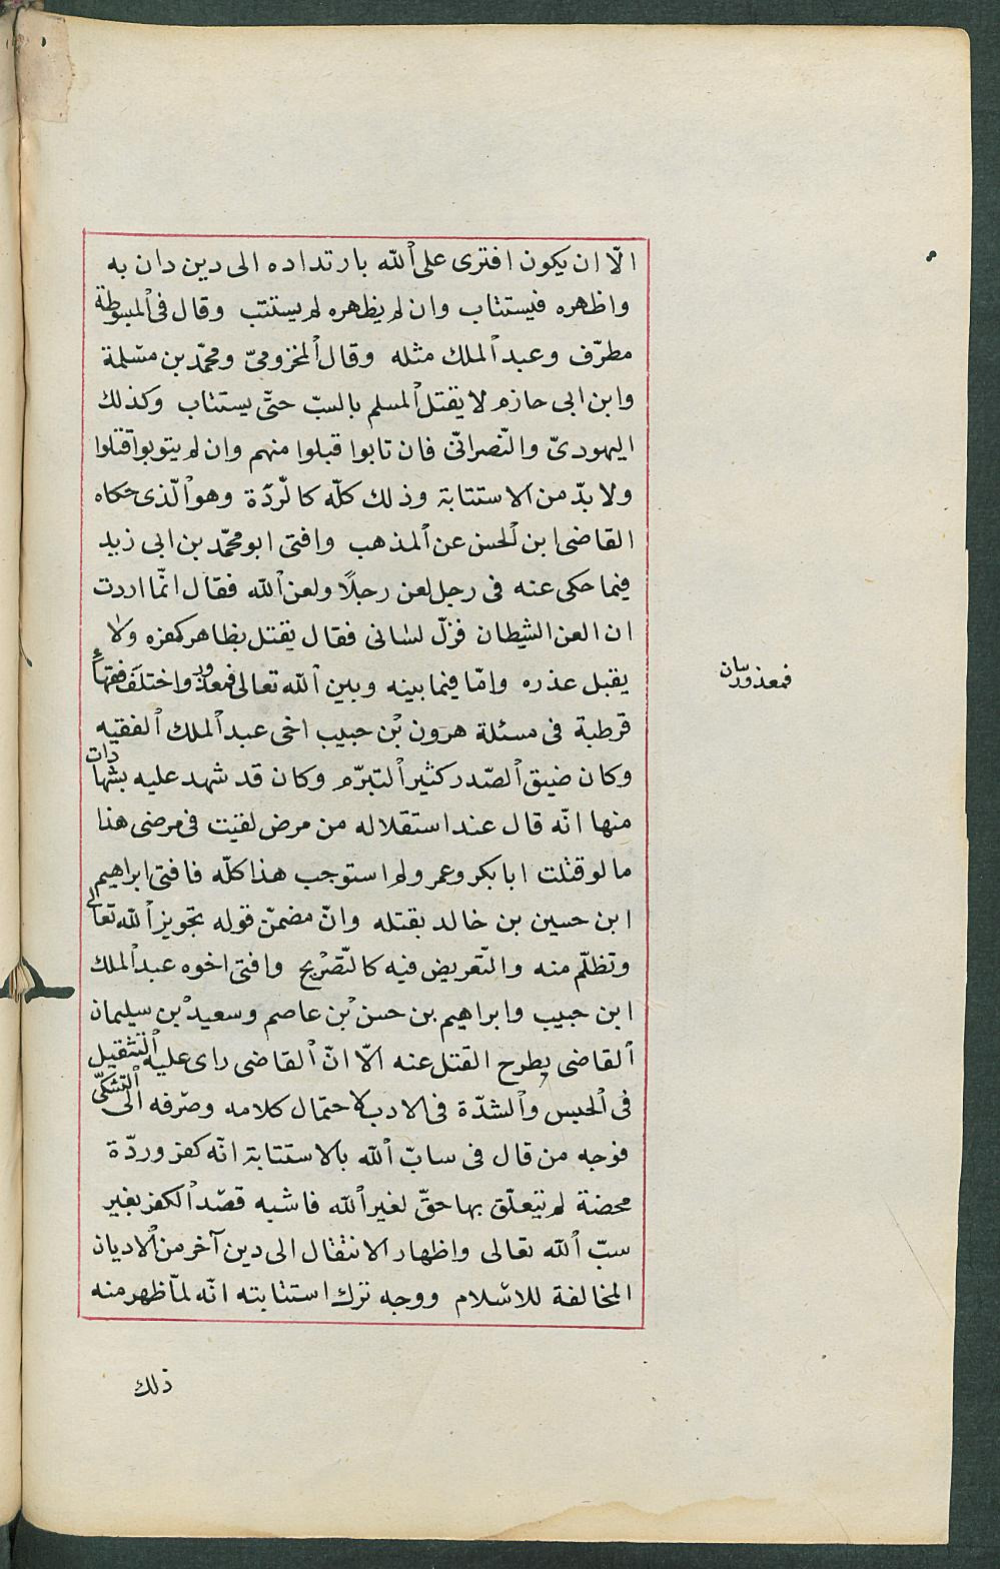 الّا ان يكون افترى على الله بارتداده الى دين دان به
واظهره فيستتاب وان لم يظهره لم يستتب وقال فى المبسوطة
مطرّف وعبد الملك مثله وقال المخزومىّ ومحمّد بن مسلمة
وابن ابى حازم لا يقتل المسلم بالسبّ حتّى يستتاب وكذلك
اليهودىّ والنّصرانىّ فان تابوا قبلوا منهم وان لم يتوبوا قتلوا
ولا بدّ من الاستتابة وذلك كلّه كالرّدّة وهو الّذى حكاه
القاضى ابن الحسن عن المذهب وافتى ابو محمّد بن ابى زيد
فيما حكى عنه فى رجل لعن رجلًا ولعن الله فقال انّما اردت
ان العن الشيطان فزلّ لسانى فقال يقتل بظاهر كفره ولا
يقبل عذره وامّا فيما بينه وبين الله تعالى فمعذور واختلف فقهاء
قرطبة فى مسئلة هرون بن حبيب اخى عبد الملك الفقيه
وكان ضيق الصّدر كثير التبرّم وكان قد شهد عليه بشهادات
منها انّه قال عند استقلاله من مرض لقيت فى مرضى هذا
ما لو قتلت ابا بكر وعمر ولم استوجب هذا كلّه فافتى ابراهيم
ابن حسين بن خالد بقتله وانّ مضمّن قوله تجويز الله تعالى
وتظلّم منه والتّعريض فيه كالتّصريح وافتى اخوه عبد الملك
ابن حبيب وابراهيم بن حسن بن عاصم وسعيد بن سليمان
القاضى بطرح القتل عنه الّا انّ القاضى راى عليه التثقيل
فى الحبس والشدّة فى الادب لاحتمال كلامه وصرفه الى التشكّى
فوجه من قال فى سابّ الله بالاستتابة انّه كفر وردّة
محضة لم يتعلّق بها حقّ لغير الله فاشبه قصد الكفر بغير
سبّ الله تعالى واظهار الانتقال الى دين آخر من الاديان
المخالفة للاسلام ووجه ترك استتابته انّه لمّا ظهر منه
ذلك
فمعذور